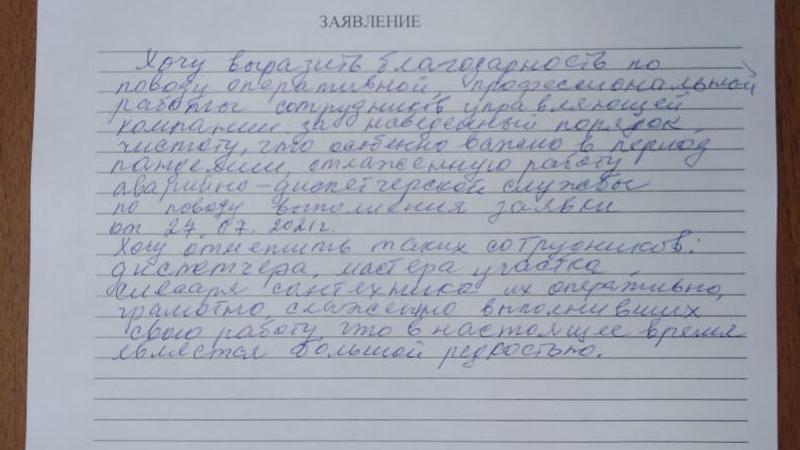 ЗАЯВЛЕНИЕ
Хочу выразить благодарность по
поводу оперативной, профессиональной
работы сотрудников управляющей
компании за наведенный порядок,
чистоту, что особенно важно в период
пандемии, отлаженную работу
аварийно-диспетчерской службы
по поводу выполнения заявки
от 27.07.2021г.
Хочу отметить таких сотрудников:
диспетчера, мастера участка,
слесаря сантехника их оперативно,
грамотно, слаженно выполнивших
свою работу, что в настоящее время
является большой редкостью.